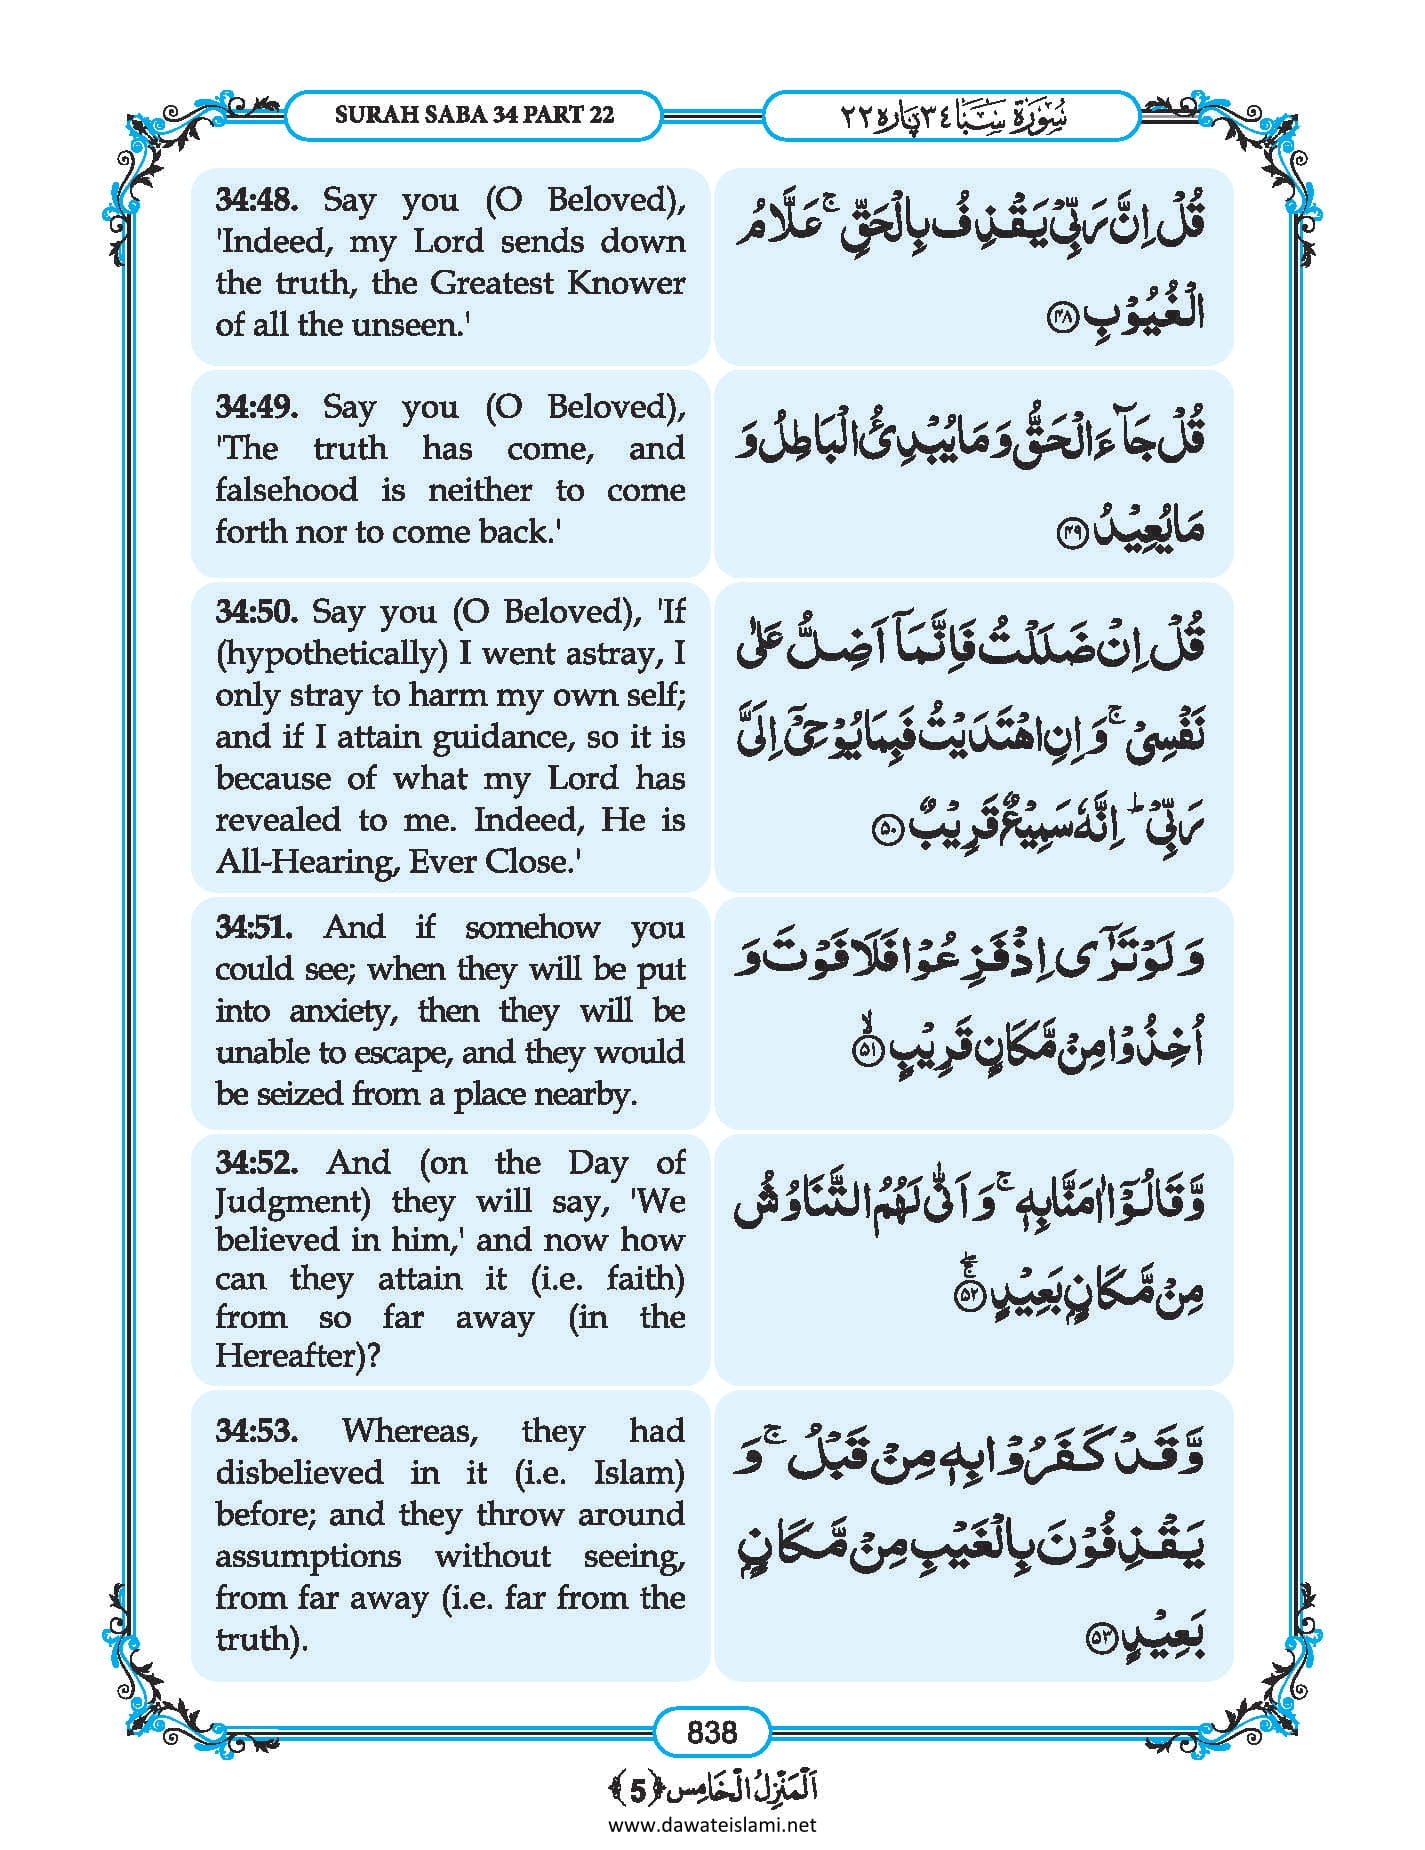 SURAH SABA 34 PART 22
سُوْرَةُ سَبَا ٣٤ پاره ٢٢
34:48. Say you (O Beloved),
'Indeed, my Lord sends down
the truth, the Greatest Knower
of all the unseen.'
قُلْ اِنَّ رَبِّیْ یَقْذِفُ بِالْحَقِّ ۚ عَلَّامُ
الْغُیُوْبِ ﴿۴۸﴾
34:49. Say you (O Beloved),
'The truth has come, and
falsehood is neither to come
forth nor to come back.'
قُلْ جَآءَ الْحَقُّ وَمَا یُبْدِئُ الْبَاطِلُ وَ
مَا یُعِیْدُ ﴿۴۹﴾
34:50. Say you (O Beloved), 'If
(hypothetically) I went astray, I
only stray to harm my own self;
and if I attain guidance, so it is
because of what my Lord has
revealed to me. Indeed, He is
All-Hearing, Ever Close.'
قُلْ اِنْ ضَلَلْتُ فَاِنَّمَاۤ اَضِلُّ عَلٰی
نَفْسِیْ ۚ وَ اِنِ اهْتَدَیْتُ فَبِمَا یُوْحِیْۤ اِلَیَّ
رَبِّیْ ؕ اِنَّهٗ سَمِیْعٌ قَرِیْبٌ ﴿۵۰﴾
34:51. And if somehow you
could see; when they will be put
into anxiety, then they will be
unable to escape, and they would
be seized from a place nearby.
وَ لَوْ تَرٰۤی اِذْ فَزِعُوْا فَلَا فَوْتَ وَ
اُخِذُوْا مِنْ مَّكَانٍ قَرِیْبٍ ﴿ۙ۵۱﴾
34:52. And (on the Day of
Judgment) they will say, 'We
believed in him,' and now how
can they attain it (i.e. faith)
from so far away (in the
Hereafter)?
وَّ قَالُوْۤا اٰمَنَّا بِهٖ ۚ وَ اَنّٰی لَهُمُ التَّنَاوُشُ
مِنْ مَّكَانٍۭ بَعِیْدٍ ﴿ۚۖ۵۲﴾
34:53. Whereas, they had
disbelieved in it (i.e. Islam)
before; and they throw around
assumptions without seeing,
from far away (i.e. far from the
truth).
وَّ قَدْ كَفَرُوْا بِهٖ مِنْ قَبْلُ ۚ وَ
یَقْذِفُوْنَ بِالْغَیْبِ مِنْ مَّكَانٍۭ
بَعِیْدٍ ﴿۵۳﴾
838
اَلْمَنْزِلُ الْخَامِس ﴿5﴾
www.dawateislami.net